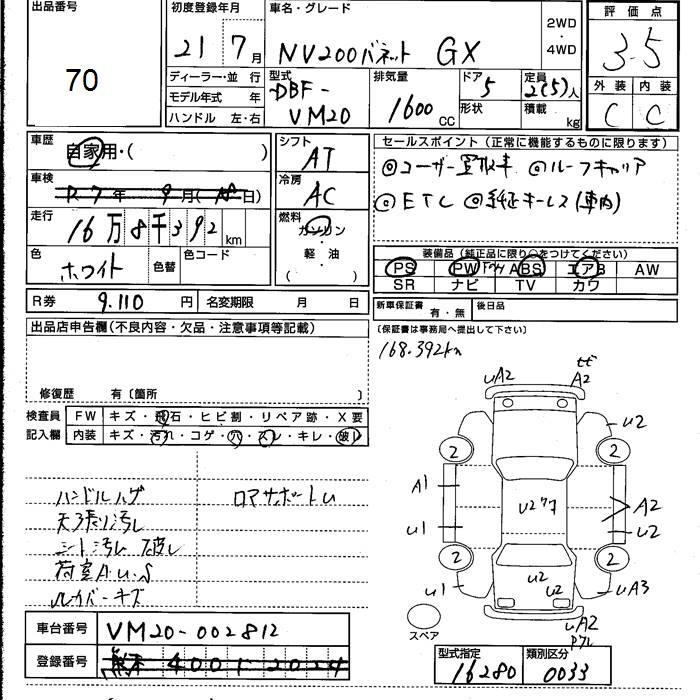 出品番号 初度登録年月 車名・グレード 2WD・4WD 評価点
70 21 7月 NV200バネット GX 3.5
ディーラー・並行 型式 排気量 ドア 定員 外装 内装
モデル年式 年 DBF-VM20 1600CC 5 2(5)人 C C
ハンドル 左・右 形状 積載 kg
車歴 自家用・( ) シフト AT セールスポイント(正常に機能するものに限ります)
◎ユーザー買取車 ◎ルーフキャリア
車検 R7年9月( 日) 冷房 AC
◎ETC ◎純正キーレス(車内)
走行 16万8千392km 燃料 ガソリン・軽油( )
色 ホワイト 色替 色コード
装備品(純正品に限り○をつけてください)
PS PW ABS エアB AW
SR ナビ TV カワ
R券 9.110円 名変期限 月 日 新車保証書 有・無 後日品
(保証書は事務局へ提出して下さい)
出品店申告欄(不良内容・欠品・注意事項等記載)
168.392km
修復歴 有〔箇所 〕
検査員 FW キズ・飛石・ヒビ割・リペア跡・X要
記入欄 内装 キズ・汚れ・コゲ・穴・スレ・キレ・破レ
ハンドルハゲ ロアサポートU
天張り汚レ
シート汚レ 破レ
荷室A.U.S
uA2 A2
U2
2 2
A1 U277 A2
U1 U2
2 2
U1 U2 U2 uA3
uA2
スペア
車台番号 VM20-002812
登録番号 熊本 400 2024
型式指定 類別区分
16280 0033